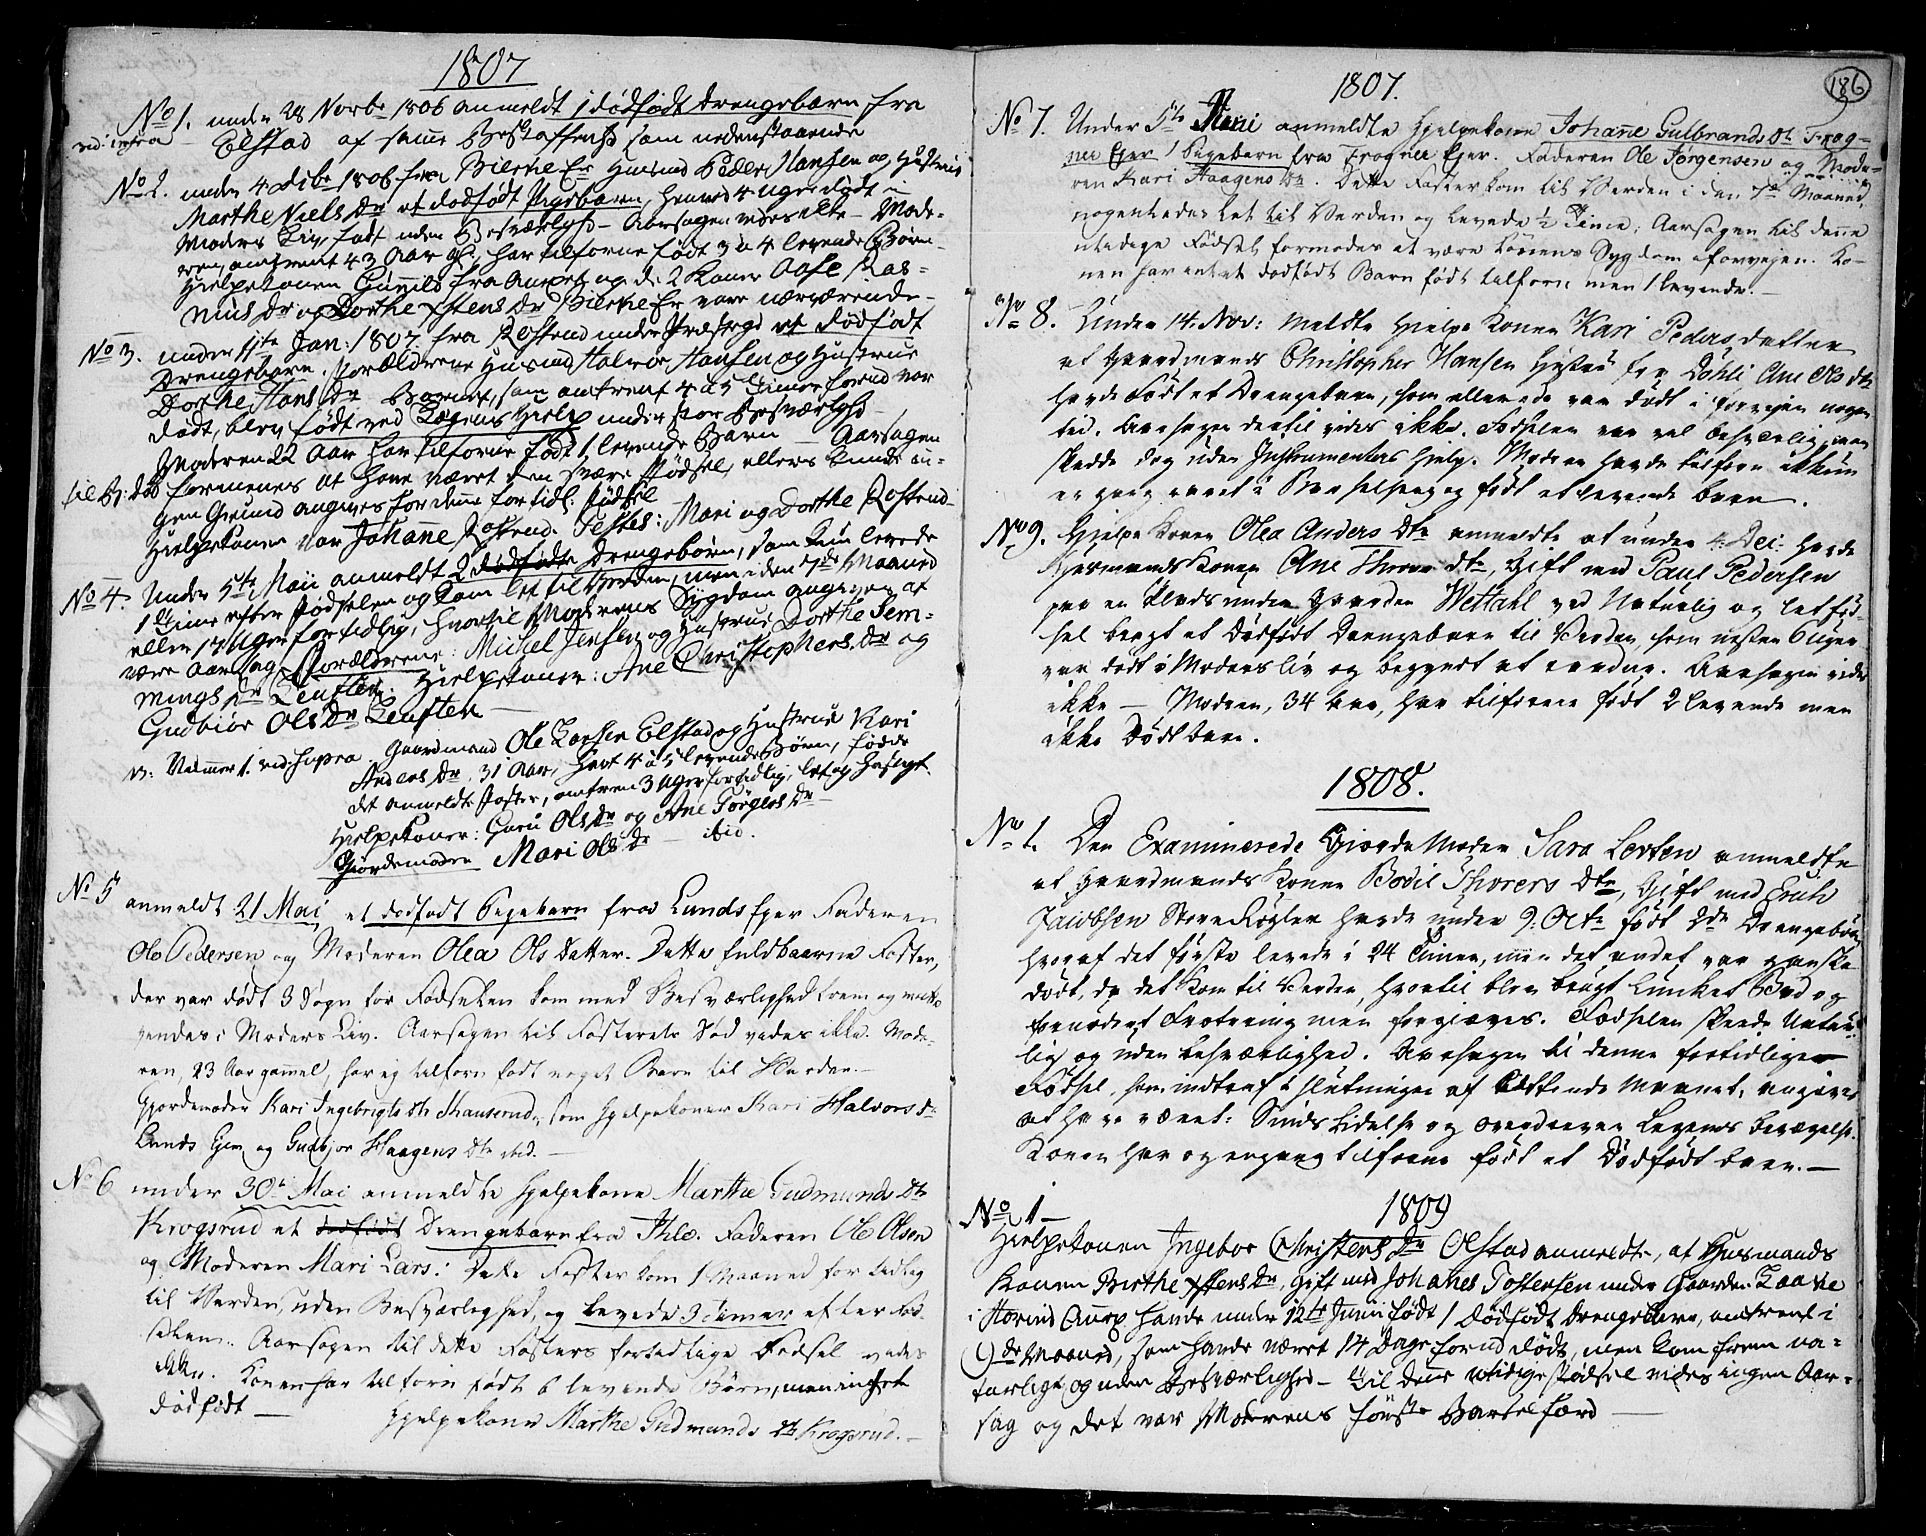 1807
No 1. under 28 Novbr 1806 anmeldt 1 dødfødt Drengebarn fra
vid: infra Elstad af samme Beskaffenhed som nedenstaaende
No 2. under 4 Debr 1806 fra Bierke Er Husmd Peder Hansen og Hustrue
Marthe Niels Dr et dødfødt Pigebarn, henved 4 Uger dødt i
Moders Liv, født uden Besværlighd - Aarsagen vides ikke - Mode-
ren, omtrent 43 Aar gl., har tilforne født 3 a 4 levende Børn -
Hielpekonen Gunnild fra Aurset og de 2 Koner Aase Ras-
mus Dr og Dorthe Xstens Dr Bierke Er vare nærværende -
No 3. under 11te Jan: 1807 fra Rostend under Præstegd et dødfødt
Drengebarn. Forældrene Husmd Halvor Hansen og Hustrue
Dorthe Hans Dr Barnet, som omtrent 4 a 5 Timer forud var
dødt, blev født ved Lægens Hielp under stor Besværlighd -
Moderen 22 Aar har tilforne født 1 levende Barn - Aarsagen
til Bs: Død formenes at have været den svære Fødsel, ellers kunde in-
gen Grund angives for denne fortidl. Fødsel
Hielpekonen var Johanne Rostend. Testes: Mari og Dorthe Rostend
No 4. Under 5te Maii anmeldt 2 dødfødte Drengebørn, som kun levede
1 Time efter Fødselen og kom let til Verden, men i den 7de Maaned
eller 17 Uger fortidlig, hvortil Moderens Sygdom angives at
være Aarsag. Forældrene: Michel Jensen og Hustrue Dorthe Sem-
mings Dr Leusten. Hielpekoner: Ane Christophers Dr og
Gudbiør Ols Dr Leusten -
N: Nummer 1. vid: supra Gaardmand Ole Larsen Elstad og Hustrue Kari
Anders Dr, 31 Aar, havt 4 a 5 levende Børn, fødde
det anmeldte Foster, omtren 3 Uger fortidlig, let og hastigt.
Hielpekoner: Guru Ols Dr og Ane Tørgers Dr -
Giordemoder Mari Ols Dr - ibid.
No 5 anmeldt 21 Mai et dødfødt Pigebarn fra Lunds Ejer Faderen
Ole Pedersen og Moderen Olea Ols Datter. Dette fuldbaarne Foster,
der var dødt 3 Døgn før Fødselen kom med Besværlighed frem og maatte
vendes i Moders Liv. Aarsagen til Fosterets Død vides ikke. Mode-
ren, 23 Aar gammel, har ej tilforn født noget Barn til Verden -
Gjordemoder Kari Ingebrigts Dtr Thauserud, som Hjelpekoner Kari Halvors Dr
Lunds Ejer og Gudbjør Haagens Dtr ibid. -
No 6 under 30te Mai anmeldte Hjelpekone Marthe Gudmunds Dtr
Krogsrud et dødfødt Drengebarn fra Ihle. Faderen Ole Olsen
og Moderen Mari Lars: Dette Foster kom 1 Maaned for tidlig
til Verden, uden Besværlighed, og levede 3 Timer efter Fød-
selen. Aarsagen til dette Fosters fortidlige Fødsel vides
ikke. Konen har tilforn født 6 levende Børn, men intet
dødfødt -
Hjelpekone Marthe Gudmunds Dtr Krogsrud. -
186
1807.
No 7. Under 5te Juni anmeldte Hjelpekone Johanne Gulbrands Dtr Frog-
ner Ejer 1 Pigebarn fra Frogner Ejer. Faderen Ole Jørgensen og Mode-
ren Kari Haagens Dtr. Dette Foster kom til Verden i den 7de Maaned,
nogenledes let til Verden og levede 1/2 Time; Aarsagen til denne
utidige Fødsel formodes at være Konens Sygdom i forvejen. Ko-
nen har intet dødfødt Barn født tilforn men 1 levende. -
No 8. Under 14. Nov: meldte Hjelpe Konen Kari Peders datter
at Gaardmands Christopher Hansen Hustru fra Døhli Ane Ols dtr
havde Født et Drengebarn, som allerede var dødt i forvejen nogen
tid. Aarsagen dertil vides ikke. Fødselen var vel besværlig, men
skedde dog uden Instrumenters Hielp. Moderen havde tilforn ikkun
en gang været i Barselseng og født et levende barn.
No 9. Hjelpe Konen Olea Anders Dtr anmeldte at under 4. Dec: havde
Huusmands Konen Ane Thore Dtr, Gift med Paul Pedersen
paa en Plads under Gaarden Wettahl ved Naturlig og let Fød-
sel bragt et Dødfødt Drengebarn til Verden, som nesten 6 Uger
var dødt i Moders liv og begyndt at raadne. Aarsagen vides
ikke - Moderen, 34 Aar, har tilforne født 2 levende men
ikke Dødt barn.
1808.
No 1. Den Examinerede Giorde Moder Sara Lerten anmeldte
at Gaardmands Konen Bodil Thorers Dtr, Gift med Erich
Jacobsen Store Røgler havde under 9. Octr født 2de Drengebørn
hvoraf det første levede i 24 Timer, men det andet var ganske
dødt, da det kom til Verden, hvortil blev brugt Lunket Bad og
fornødent Frotering men forgieves. Fødselen skede Natur-
lig og uden besværlighed. Aarsagen til denne fortidlige
Fødsel, som indtraf i slutningen af Ottende Maanet, angives
at have været: Sinds Lidelse og overdreven Legems bevægelse.
Konen har og engang tilforne født et Dødfødt barn. -
1809
No 1 -
Hielpekonen Ingebor Christens Dr Olstad anmeldte, at Husmands
Konen Birthe Xstens Dr, Gift med Johanes Tostensen under Gaarden Kaarke
i Hovind Anex havde under 12te Junii født 1 Dødfødt Drengebarn, omtrent i
9de Maaned, som havde været 14 Dage forud dødt, men kom frem na-
turligt og uden Besværlighed - Til denne utidige Fødsel vides ingen Aar-
sag og det var Moderens første Barselfærd -